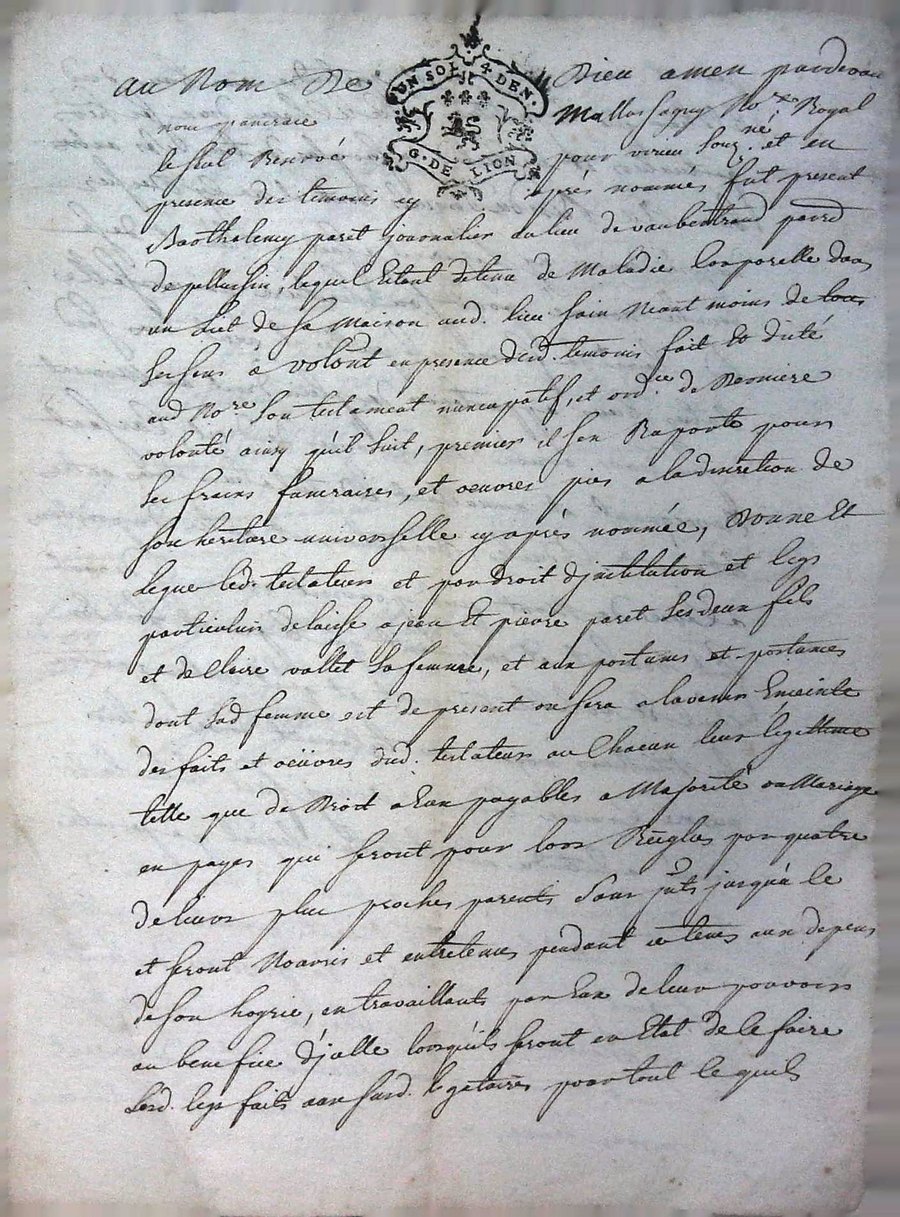 au Nom De Dieu amen pardevan
UN SOL 4 DEN.
G. DE LION
Royal
le seul Renvoé pour virieu souz.né et en
presence des temoins cy après nommés fut present
Barthelemy paret journalier du lieu de vaubertrand parr.d
de pellussin, lequel Etant detenu de Maladie Corporelle dans
un Lict de sa Maison aud. lieu sain Neant moins de tous
ses sens à volont en presence desd. temoins fait Et dicté
aud No.re son testament nuncupatif, et ord.ce de Derniere
volonté ainsy qu'il suit, premier il s'en Raporte pour
ses frains funeraires, et oeuvres pies a la discretion de
son heritiere universelle cy après nommée, Donne Et
Legue led. testateur et par droit d'jnstitution et legs
particulier delaisse a jean Et pierre paret ses deux fils
et de Claire vallet sa femme, et aux postumes et postumes
dont sad femme est de present ou sera a lavenir Enceinte
des faits et oeüvres dud. testateur au Chacun leur legettime
telle que de Droit a Eux payables a Majorité ou Mariage
en payes qui seront pour lors Réeglés par quatre
de leurs plus proches parents sans jnts jusqu'a le
et seront Nourris et entretenus pendant ce tems aux depens
de son hoyrie, en travaillants par Eux de leur pouvoir
au benefice d'jcelle lorsqu'ils seront en Etat de le faire
Lesd. legs faits aux susd. legataires pour tout le quils